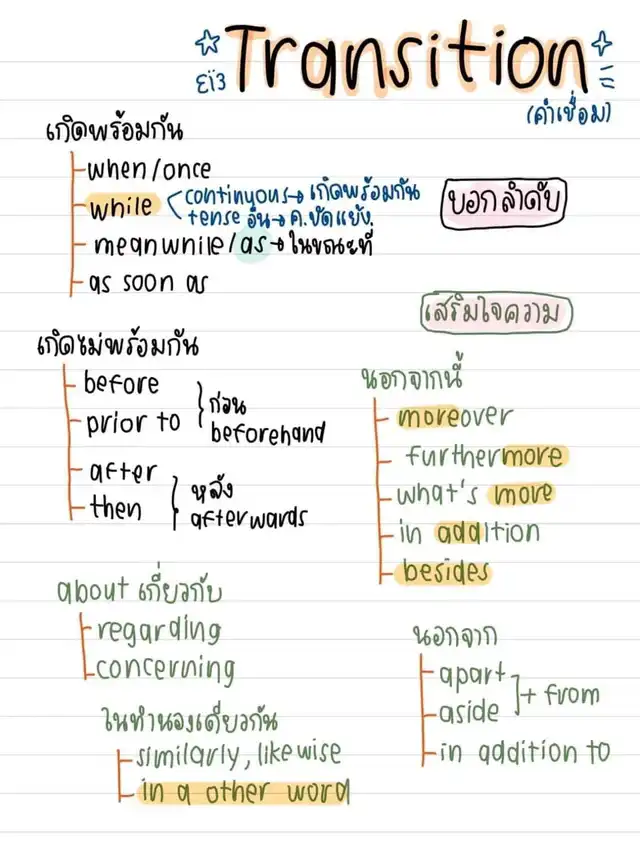 Transition
εïз
(คำเชื่อม)
เกิดพร้อมกัน
when/once
while
continuous→ เกิดพร้อมกัน
tense อื่น→ ค.ขัดแย้ง
meanwhile/as→ ในขณะที่
as soon as
บอกลำดับ
เกิดไม่พร้อมกัน
before
prior to
ก่อน
beforehand
after
then
หลัง
afterwards
เสริมใจความ
นอกจากนี้
moreover
furthermore
what's more
in addition
besides
about เกี่ยวกับ
regarding
concerning
นอกจาก
apart
aside
+ from
in addition to
ในทำนองเดียวกัน
similarly, likewise
in a other word